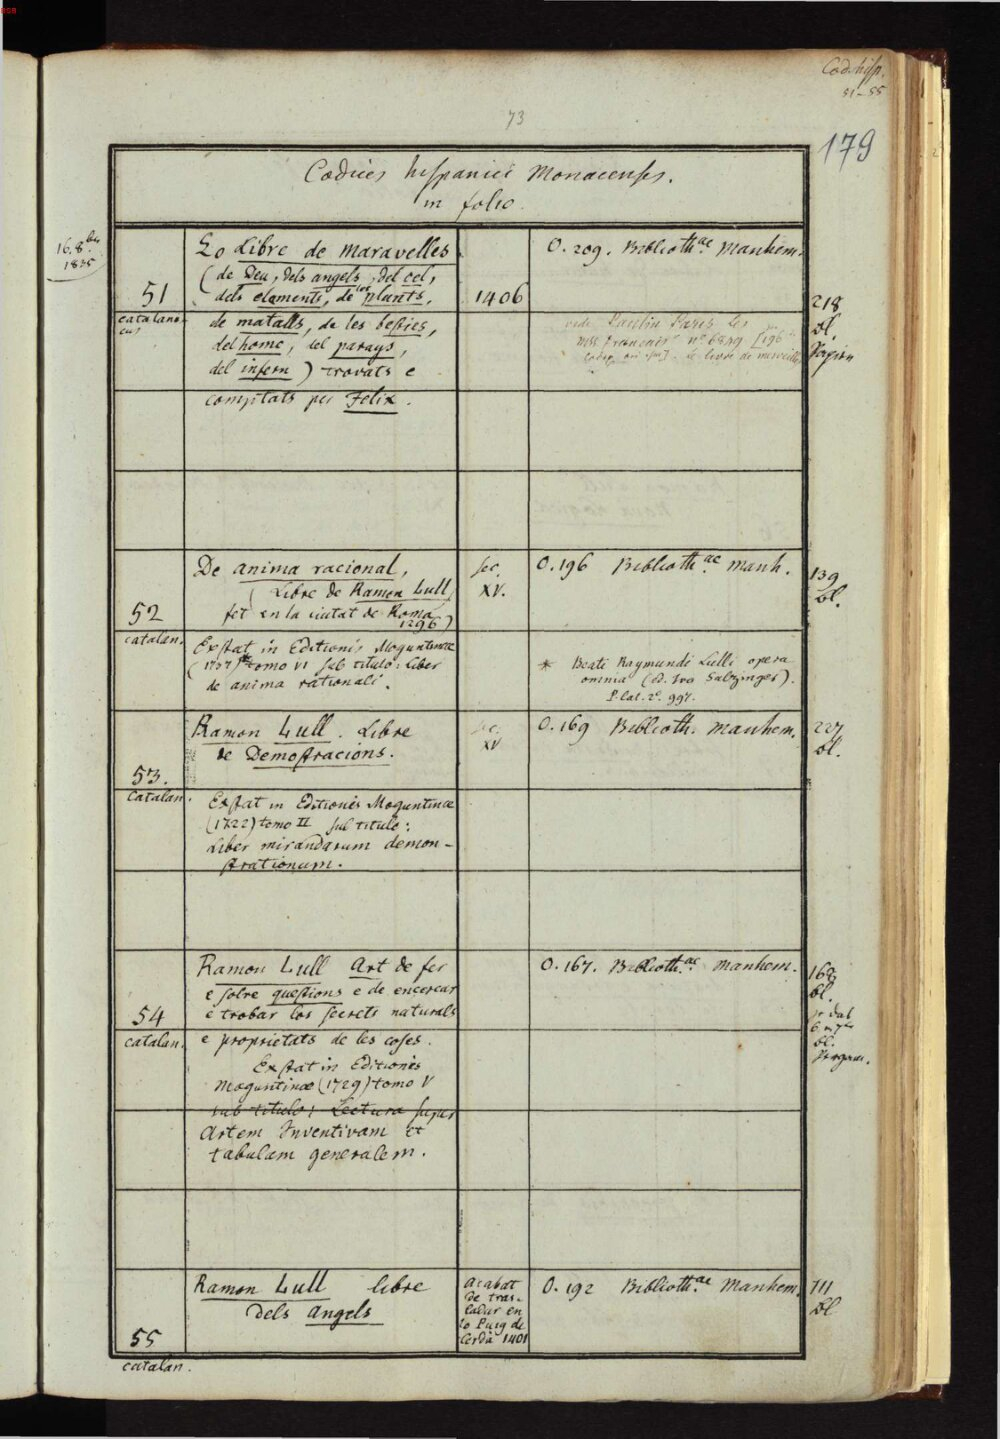 BSB
Cod. hisp.
51-55
73
179
Codices hispanici Monacenses.
in folio.
16. 8ber
1835
51
catalanicus
Lo Libre de maravelles
(de Deu, dels angels, del cel,
dels elements, de les plants,
de matalls, de les besties,
del home, del parays,
del infern) trovats e
comptats per Felix.
1406
O. 209. Biblioth.ae Manhem.
vide Paulin Paris les
mss. français n.o 6849 [196
le livre de merveilles
218
Bl.
Papier
52
catalan.
De anima racional,
(Libre de Ramon Lull
fet en la ciutat de Roma
1296)
Exstat in Editionis Moguntinae
(1737)* tomo VI sub titulo: Liber
de anima rationali.
sec.
XV.
O. 196 Biblioth.ae Manh.
* Beati Raymundi Lulli opera
omnia (ed. Ivo Salzinger).
P. lat. 2o. 997.
139
Bl.
53.
catalan.
Ramon Lull. Libre
de Demostracions.
Exstat in Editionis Moguntinae
(1722) tomo II sub titulo:
Liber mirandarum demon-
strationum.
sec.
XV
O. 169 Biblioth. Manhem.
227
Bl.
54
catalan.
Ramon Lull Art de fer
e solre questions e de encercar
e trobar los secrets naturals
e proprietats de les coses.
Exstat in Editionis
Moguntinae (1729) tomo V
sub titulo: Lectura super
Artem Inventivam et
tabulam generalem.
O. 167. Biblioth.ae Manhem.
Bl.
Bl.
Pergam.
55
catalan.
Ramon Lull libre
dels Angels
Acabat
de tras-
ladar en
lo Puig de
Cerdà 1401
O. 192 Biblioth.ae Manhem.
111
Bl.